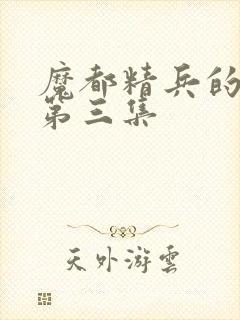 魔都精兵的
第三集
天外游雲